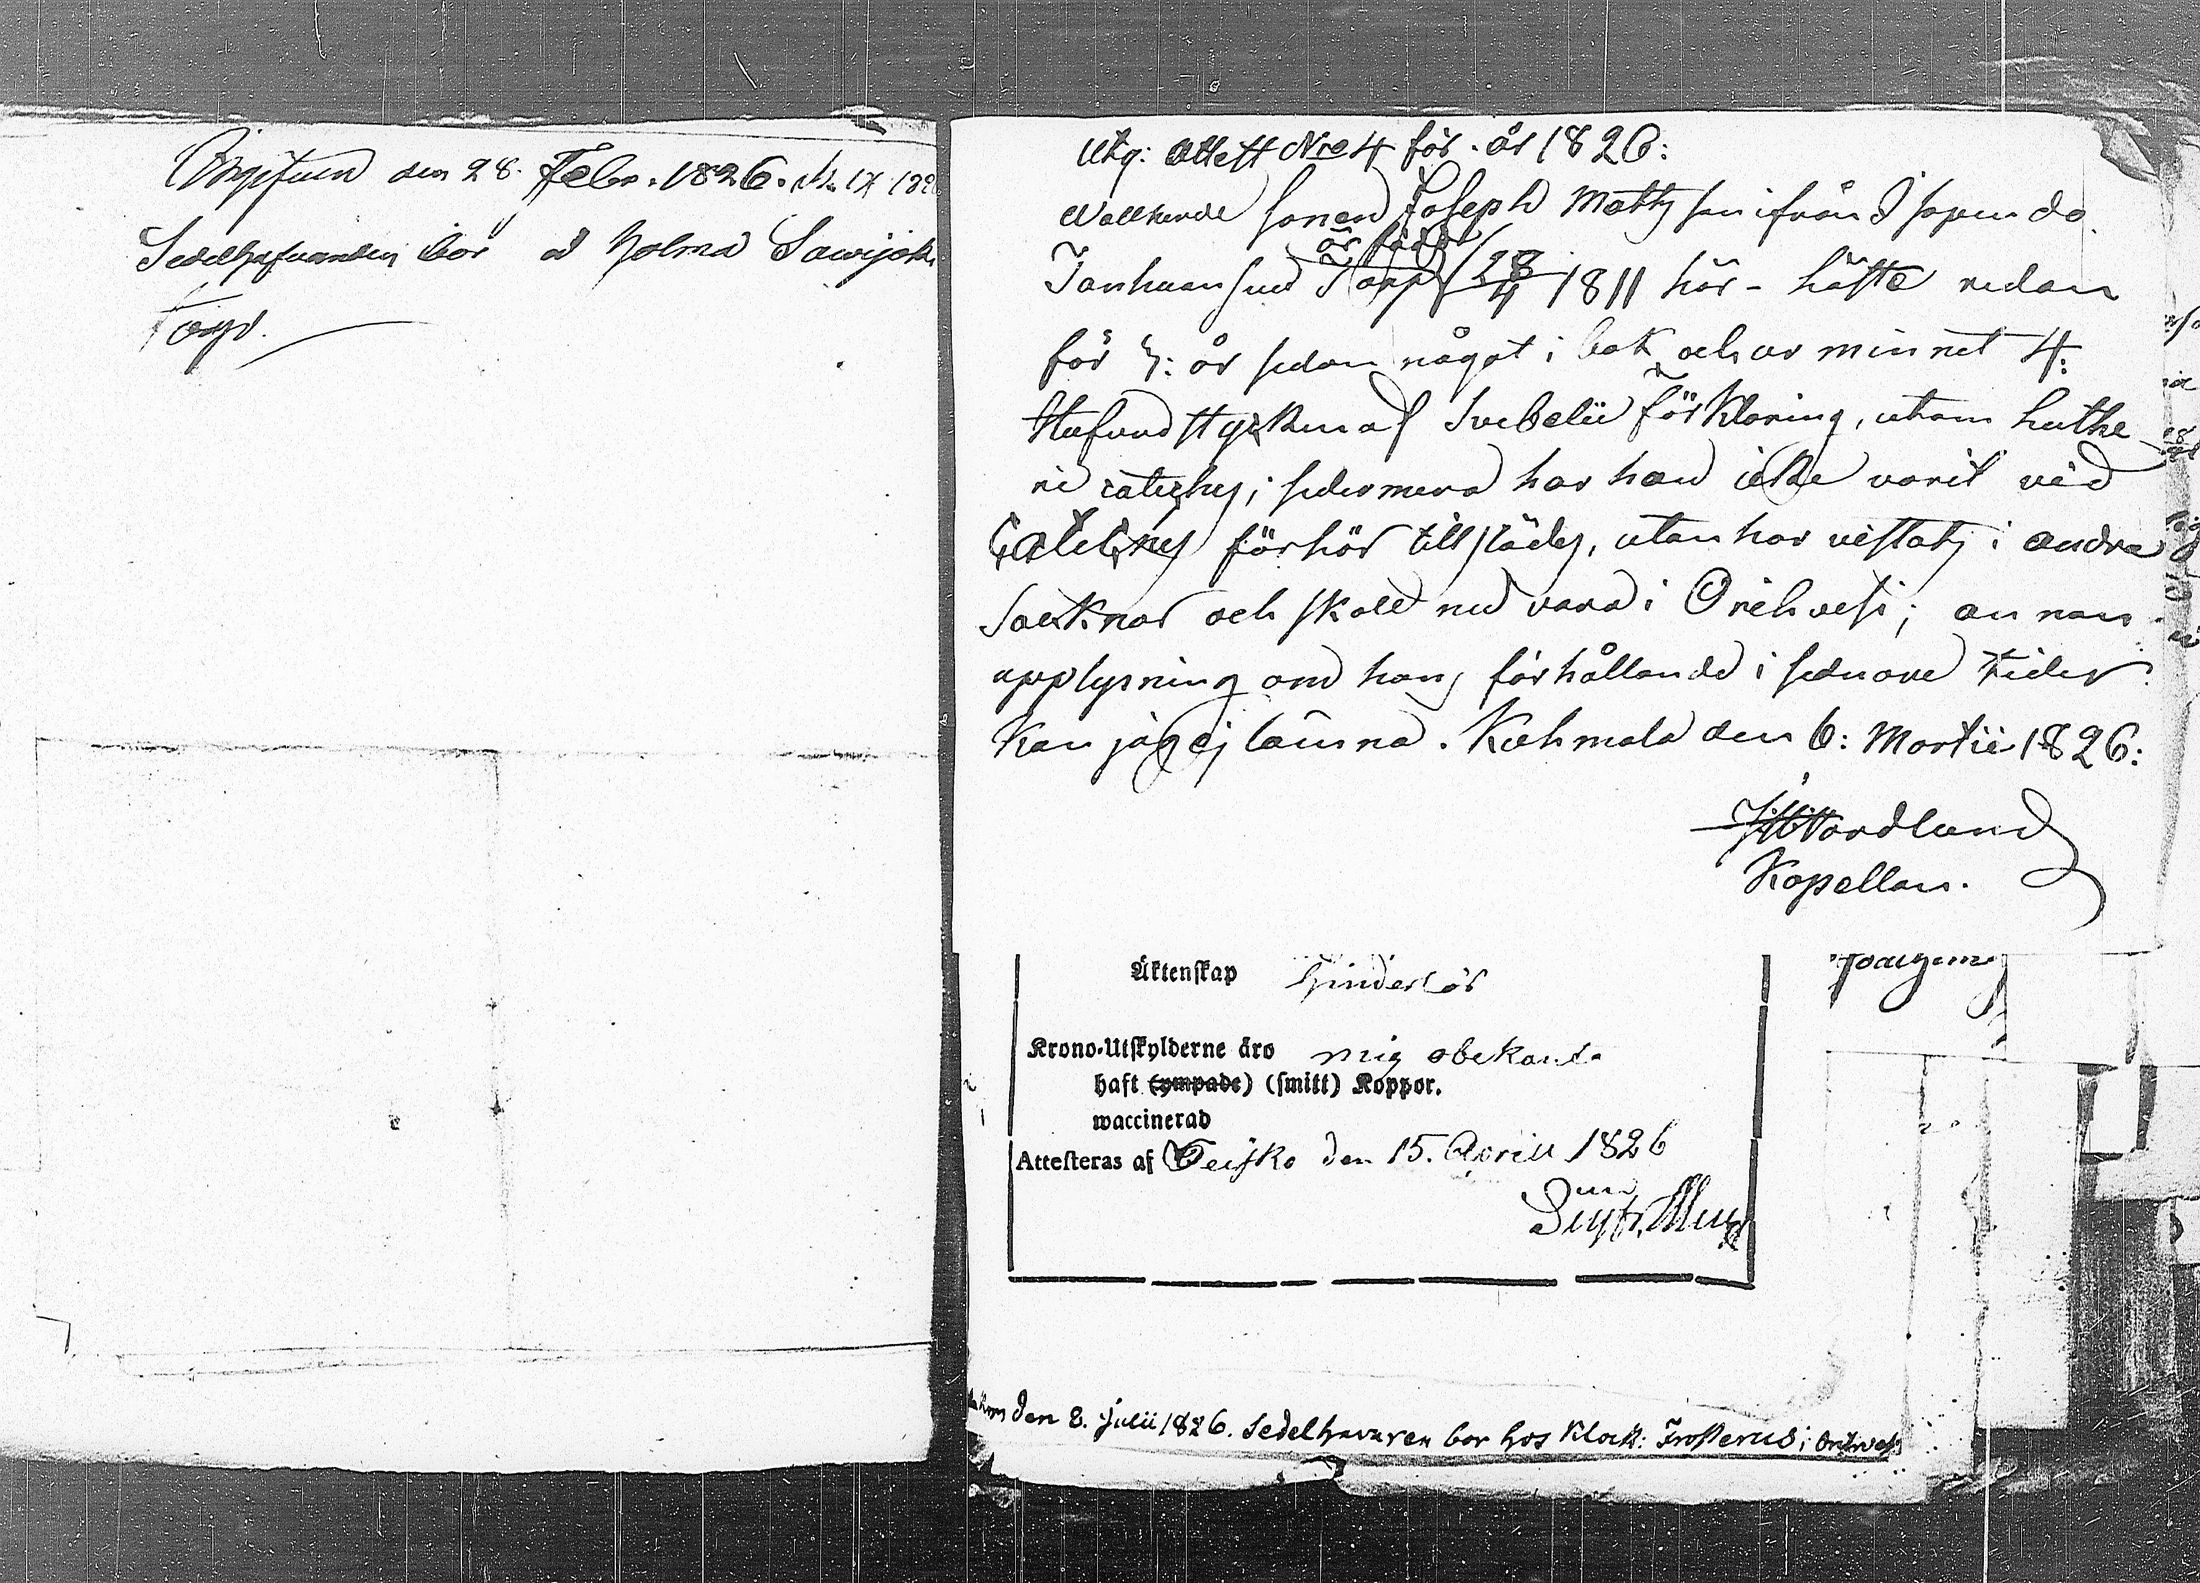 Angifven den 28. Febr. 1826. N. 17 182
Sedelhafvanden bor å Holma Sawijoki
Torp.
Utg: Attest No 4 för år 1826:
Vallhende sonen Joseph Mattsson ifrån Isopenda
är född
Janhuansuo Torp 28/4 1811 här - häfte redan
för 7: år sedan något i bok och ur minnet 4:
Hufvudstycken af Svebelii Förklaring, utom Luthe
ri cateches; sedermera har han icke varit vid
Catechis förhör tillstädes, utan har vistats i andra
Socknar och skall nu vara i Orihvesi; annan
upplysning om hans förhållande i sednare tider
kan jag ej lämna. Kuhmala den 6: Martii 1826:
Nordlund
Kapellan.
Äktenskap hinderlös
Krono-Utskylderne äro mig obekanta
haft (ympade) (smitt) Koppor.
waccinerad
Attesteras af Teisko den 15. April 1826
den 8. Julii 1826. Sedelhavaren bor hos Klock: Frosterus i Orihvesi